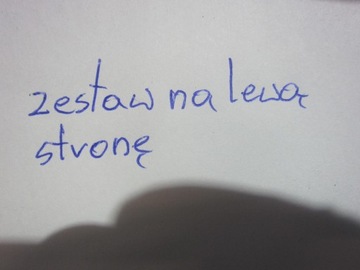 zestaw na lewą
stronę